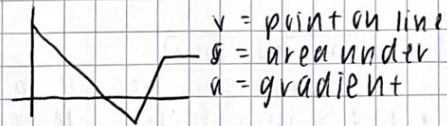 v = point on line
s = area under
a = gradient